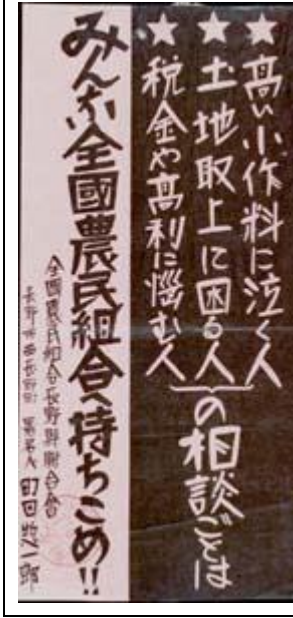 ★高い小作料に泣く人
★土地取上に困る人
★税金や高利に悩む人
の相談ごとは
みんな全國農民組合へ持ちこめ!!
全國農民組合長野縣聯合會
長野市西長野町